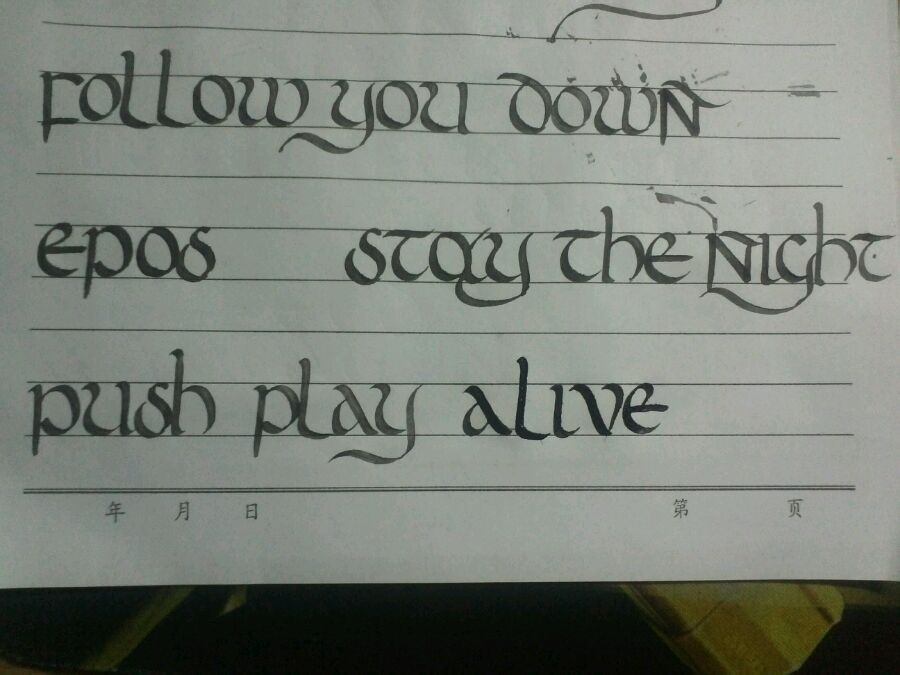 Follow you down
epos stay the Night
push play alive
年 月 日 第 页